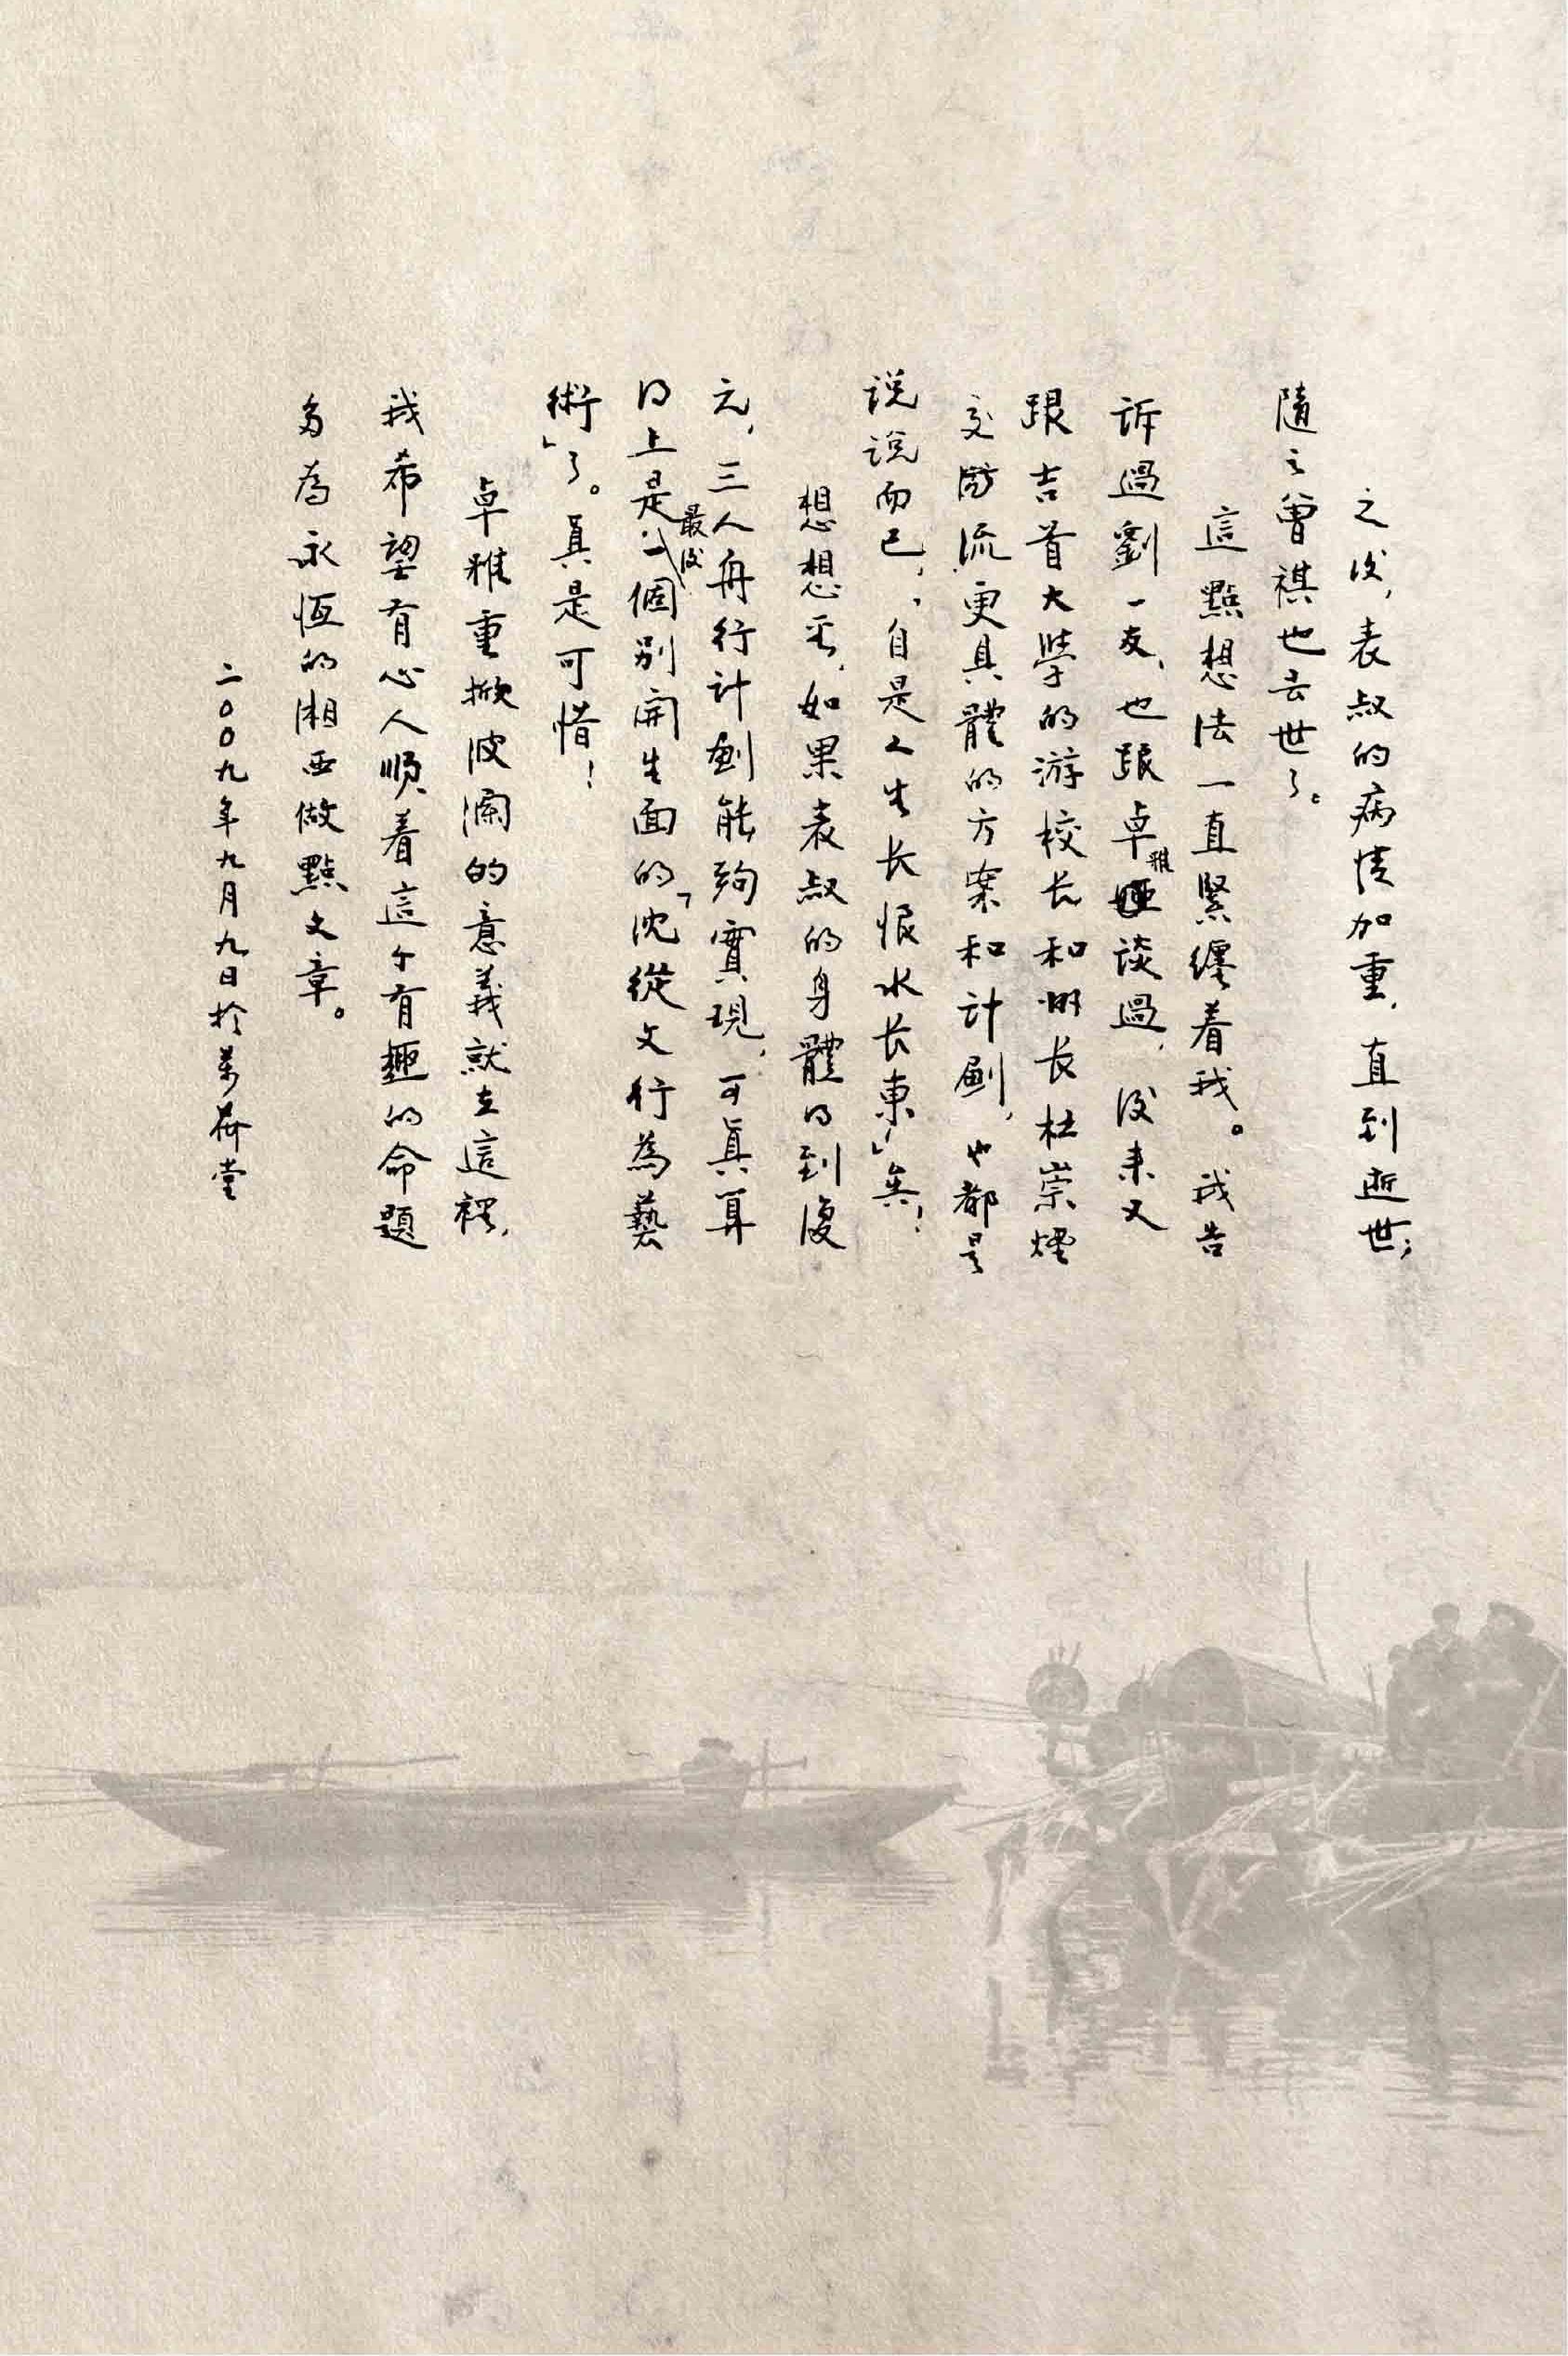 之後，表叔的病情加重，直到逝世；
隨之曾祺也去世了。
這點想法一直緊纏着我。我告
訴過劉一友，也跟卓雅談過，後来又
跟吉首大學的游校长和州长杜崇煙
交流更具體的方案和計劃，也都是
说说而已，「自是人生长恨水长東」矣！
想想看，如果表叔的身體得到復
元，三人舟行計劃能夠實現，可真算
得上是最後一個别開生面的「沈從文行為藝
術」了。真是可惜！
卓雅重掀波瀾的意義就在這裡，
我希望有心人順着這个有趣的命題
多為永恆的湘西做點文章。
二〇〇九年九月九日於萬荷堂